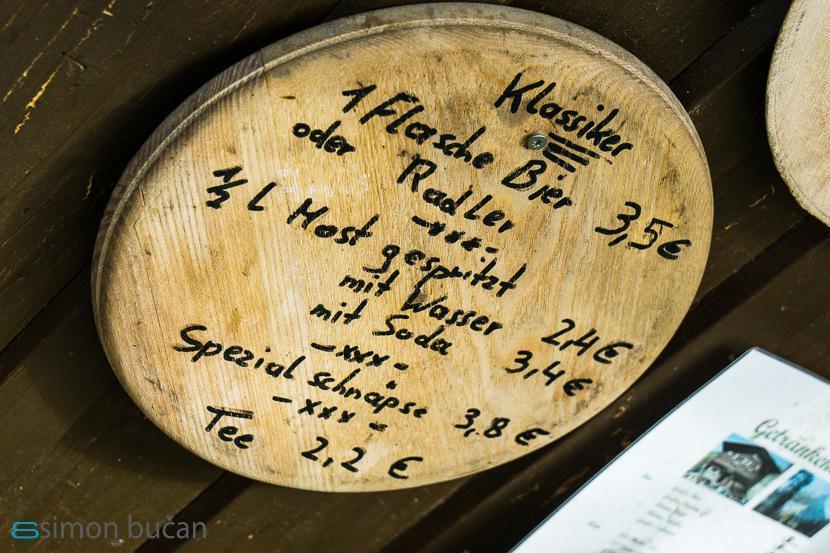 Klassiker
1 Flasche Bier
oder Radler 3,5 €
-xxx-
½ L Most gespritzt
mit Wasser 2,4 €
mit Soda 3,4 €
-xxx-
Spezialschnäpse 3,8 €
-xxx-
Tee 2,2 €
Getränke
simon bučan